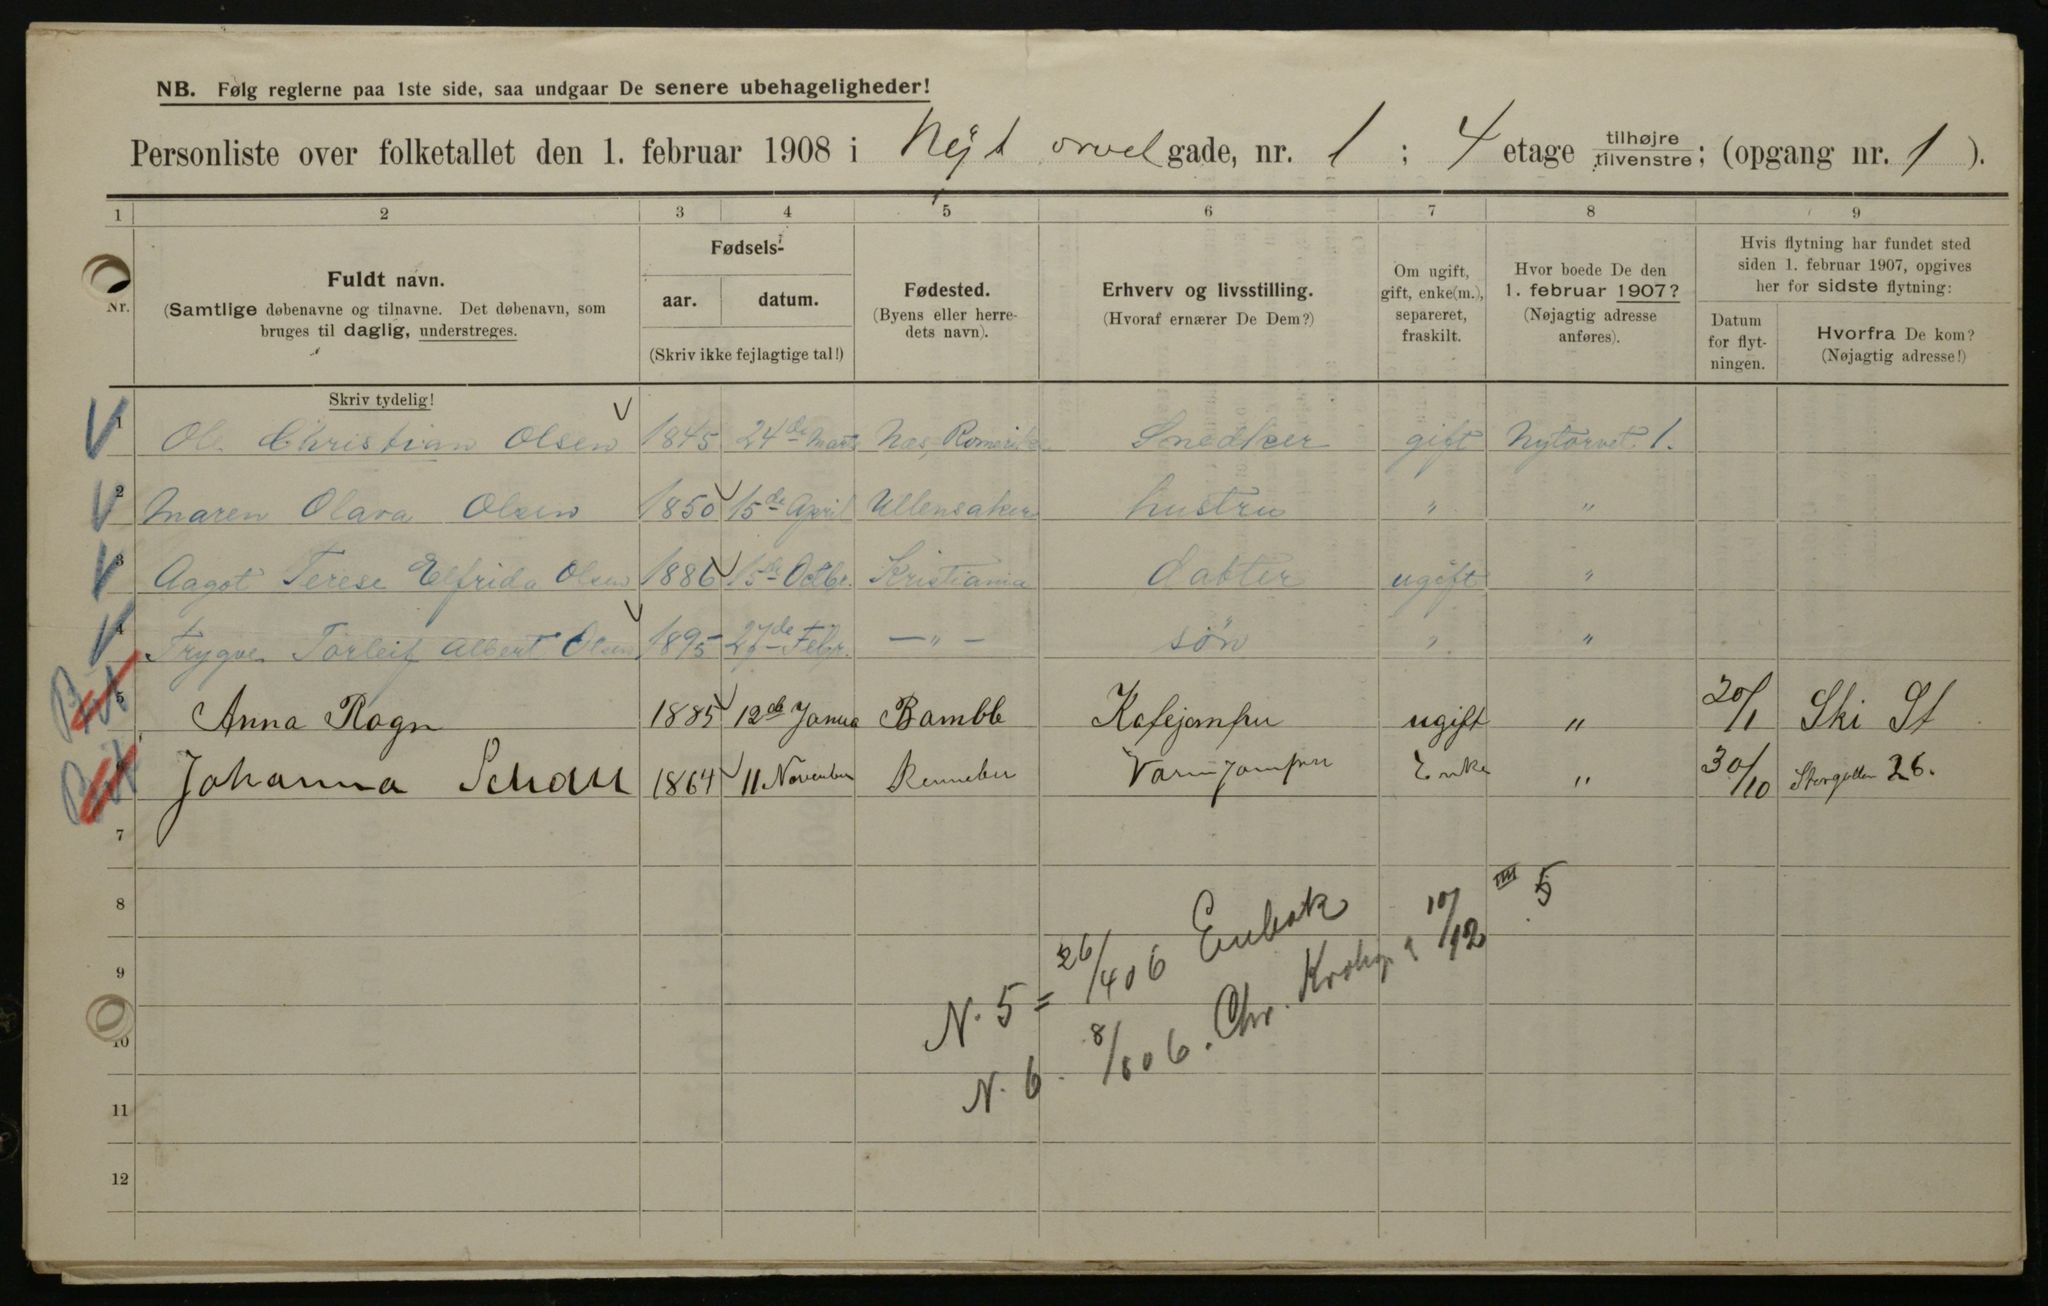 NB. Følg reglerne paa 1ste side, saa undgaar De senere ubehageligheder!
Personliste over folketallet den 1. februar 1908 i Nyt orvet gade, nr. 1 ; 4 etage tilhøjre tilvenstre; (opgang nr. 1 ).
1 2 3 4 5 6 7 8 9
Nr.
Fuldt navn.
(Samtlige døbenavne og tilnavne. Det døbenavn, som
bruges til daglig, understreges.
Skriv tydelig!
Fødsels-
aar. datum.
(Skriv ikke fejlagtige tal!)
Fødested.
(Byens eller herre-
dets navn).
Erhverv og livsstilling.
(Hvoraf ernærer De Dem?)
Om ugift,
gift, enke(m.),
separeret,
fraskilt.
Hvor boede De den
1. februar 1907?
(Nøjagtig adresse
anføres).
Hvis flytning har fundet sted
siden 1. februar 1907, opgives
her for sidste flytning:
Datum
for flyt-
ningen.
Hvorfra De kom?
(Nøjagtig adresse!)
1 Ole Christian Olsen 1845 24de Marts Næs, Romerike Snedker gift Nytorvet 1.
2 Maren Olava Olsen 1850 15de April Ullensaker hustru " "
3 Aagot Terese Elfrida Olsen 1886 15de Octbr. Kristiania datter ugift "
4 Trygve Torleif Albert Olsen 1895 27de Febr. — " — søn " "
5 Anna Rogn 1885 12de Janua Bamble Kafejomfru ugift " 20/1 Ski St
6 Johanna Schou 1864 11 November Rennebu Varmjomfru Enke " 30/10 Storgatten 26.
7
8
9
10
11
12
N. 5 = 26/4 06 Enebak
N. 6. 8/8 06. Chr. Krohgs 10/12 III 5